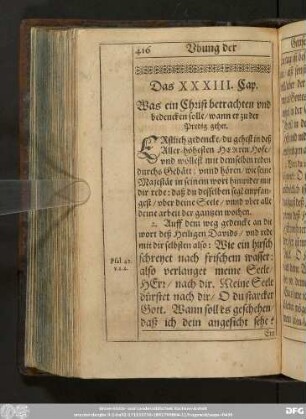 416 Vbung der
Das XXXIII. Cap.
Was ein Christ betrachten vnd
bedencken solle/ wann er zu der
Predig gehet.
ERstlich gedencke/ du gehest in deß
Aller höhesten HERRN Hofe/
vnd wöllest mit demselben reden
durchs Gebätt: vnnd hören/ wie seine
Majestät in seinem wort hinwider mit
dir rede: daß du desselben segẽ empfangest/
vber deine Seele/ vnnd vber alle
deine arbeit der gantzen wochen.
2. Auff dem weg gedenck an die
wort deß Heiligen Davids/ vnd rede
mit dir selbsten also: Wie ein hirsch
schreyet nach frischem wasser:
also verlanget meine Seele/
HErr/ nach dir. Meine Seele
dürstet nach dir/ O du starcker
Gott. Wann soll es geschehen/
daß ich dein angesicht sehe?
Psal 42.
Ein